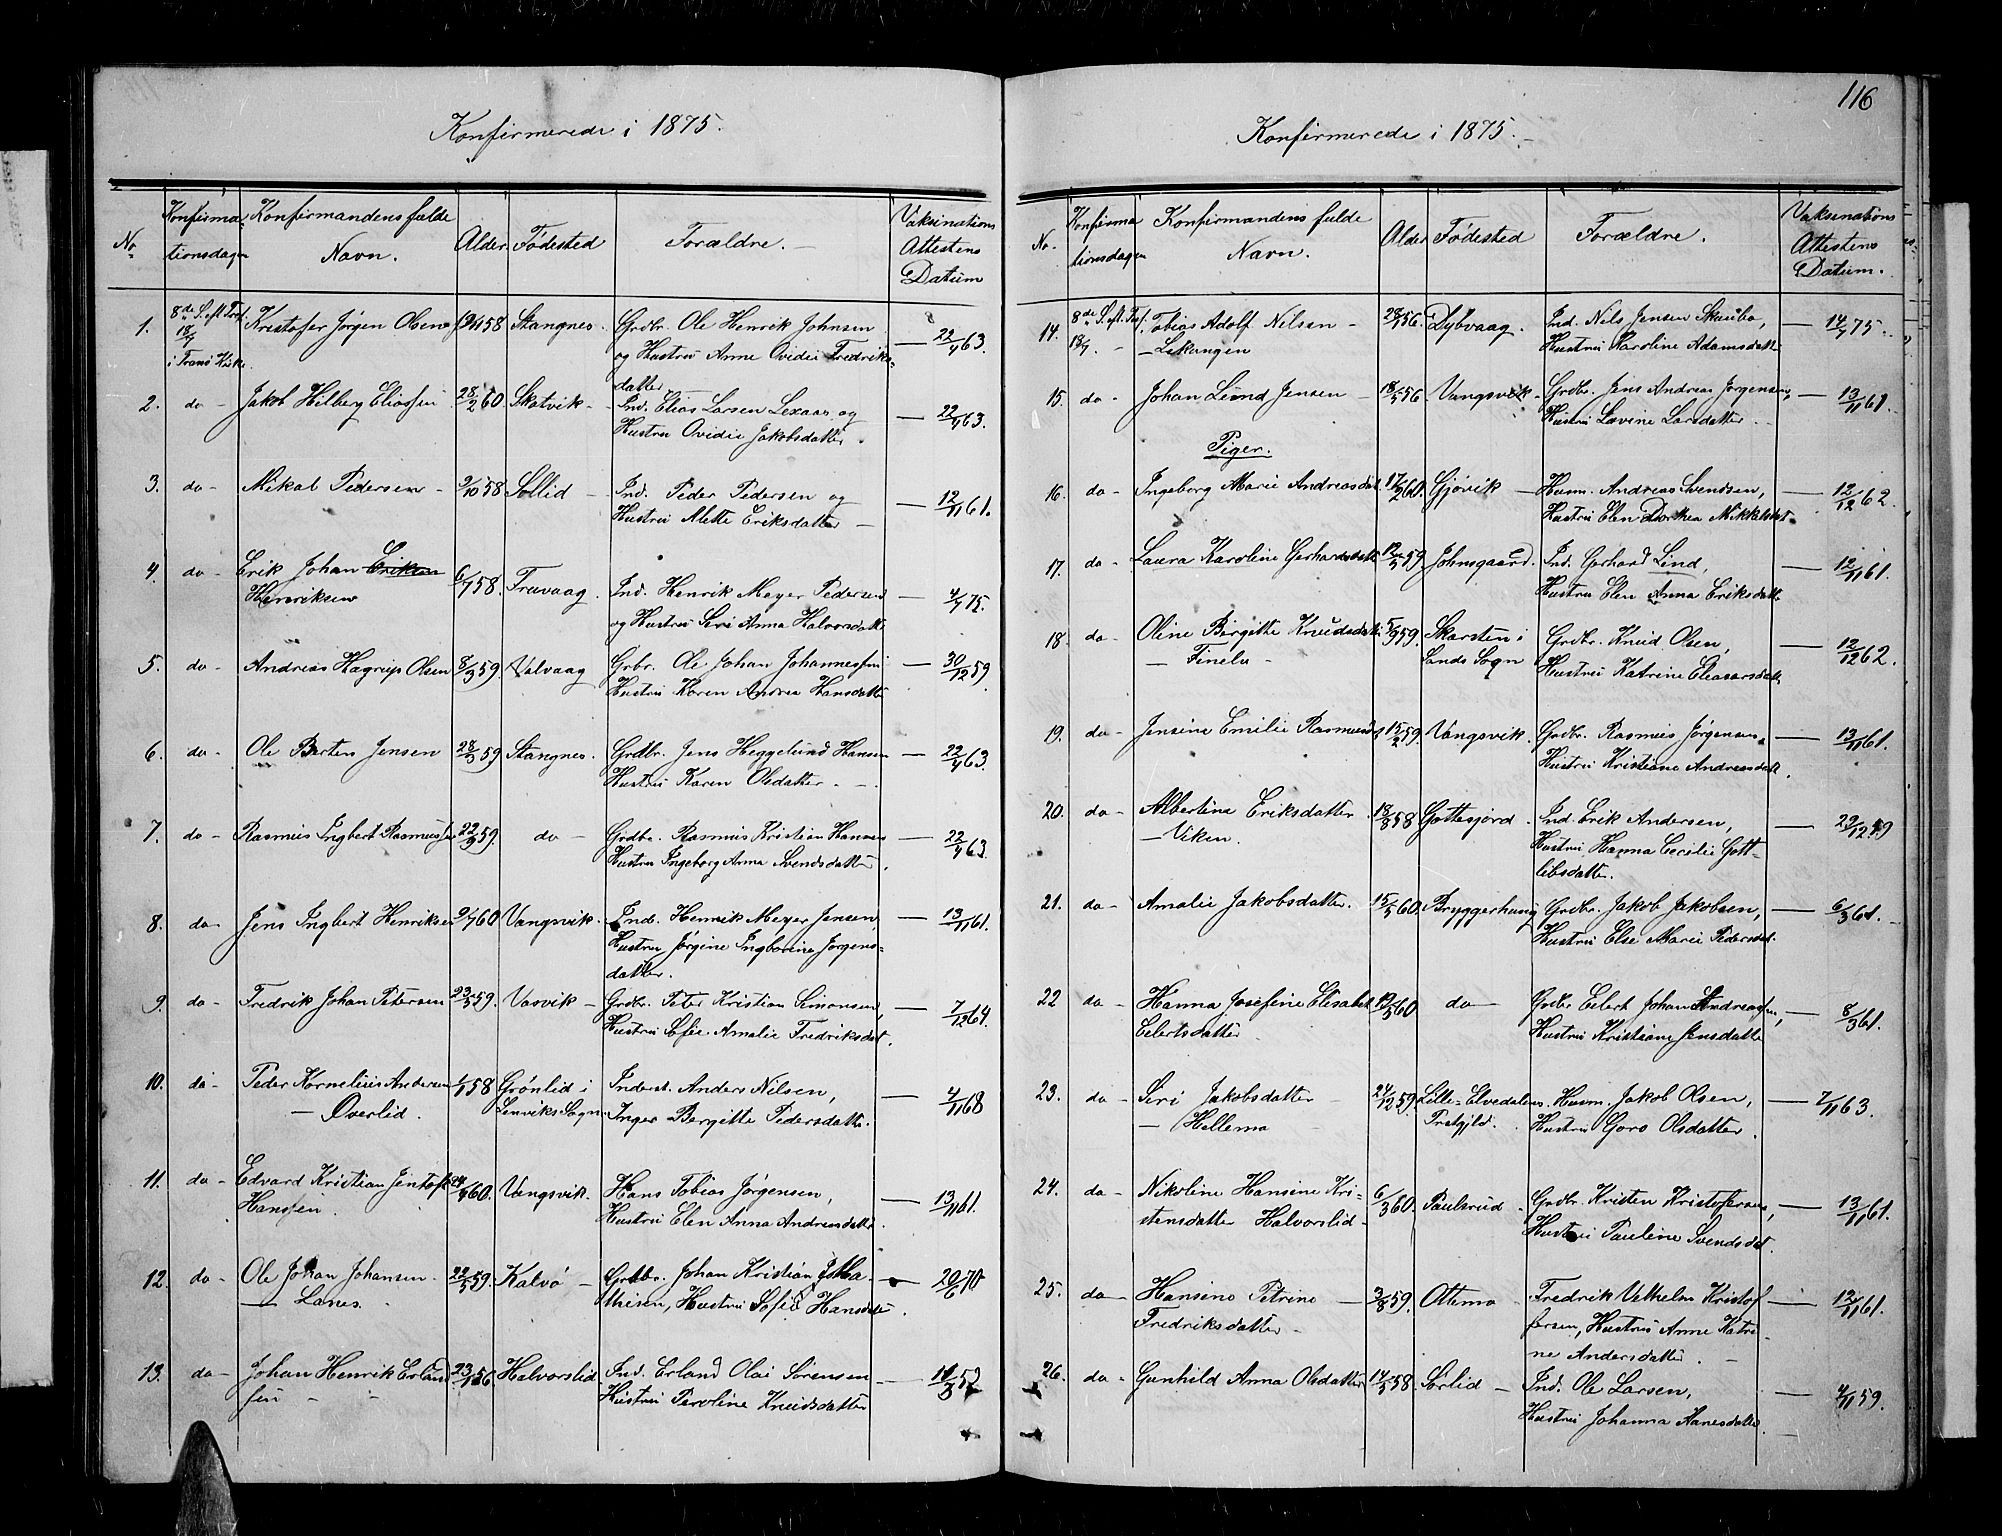 116
Konfirmerede i 1875.
No
Konfirma-
tionsdagen
Konfirmandens fulde
Navn.
Alder
Fødested
Forældre.
Vaksinations
Attestens
Datum
1. 8de S. eft Tref. 18/7 i Tranø Kirke. Kristofer Jørgen Olsen 58 Stangnes. Grdbr. Ole Henrik Johnsen — 22/4 63.
og Hustru Anne Ovidie Fredriks-
datter
2. do — Jakob Hilberg Eliassen 28/2 60 Skatvik — Ind. Elias Larsen Lexaas og — 22/4 63.
Hustru Ovidie Jakobsdatter.
3. do — Mikal Pedersen — 2/10 58 Sollid — Ind. Peder Pedersen og — 12/11 61.
Hustru Mette Eriksdatter —
4. do — Erik Johan Eriksen 6/7 58. Truvaag. Ind. Henrik Meyer Pedersen — 4/7 75.
Henriksen og Hustru Seri Anna Halvorsdatt.
5. do — Andreas Hagrup Olsen 8/3 59 Valvaag Grbr. Ole Johan Johannessen — 30/12 59
Hustru Karen Andrea Hansdatter
6. do — Ole Berten Jensen 28/3 59 Stangnes. Grdbr. Jens Heggelund Hansen — 22/4 63.
Hustru Karen Olsdatter. —
7. do — Rasmus Ingbert Rasmussen 22/9 59. do — Grdbr. Rasmus Kristian Hansen — 22/4 63.
Hustru Ingeborg Anna Svendsdatter.
8. do — Jens Ingbert Henriksen 60 Vangsvik. Ind. Henrik Meyer Jensen, — 13/11 61.
Hustru Jørgine Ingborine Jørgens-
datter.
9. do — Fredrik Johan Petersen 23/3 59. Vasvik — Grdbr. Peter Kristian Simonsen, — 7/12 64.
Hustru Sofie Amalie Fredriksdat.
10. do — Peder Kornelius Andersen 1/1 58 Grønlid i Inderst. Anders Nilsen, — 4/11 68
— Øverlid. Lenviks Sogn. Inger Bergitte Pedersdatt.
11. do — Edvard Kristian Jentoft 60. Vangsvik. Hans Tobias Jørgensen, — 13/11 61.
Hansen. Hustru Elen Anna Andreasdatter.
12. do — Ole Johan Johansen — 22/5 59. Kalvø — Grdbr. Johan Kristian — 20/6 70
— Lanes. thisen, Hustru Sofie Hansdatter.
13. do — Johan Henrik Erland- 23/1 56 Halvorslid Ind. Erland Olai Sørensen —
sen — Hustru Peroline Knudsdatter
Konfirmerede i 1875. —
No.
Konfirma
tionsdagen
Konfirmandens fulde
Navn.
Alder
Fødested
Forældre.
Vaksinations
Attestens
Datum.
14. 8de S. eft Tref. 18/7. — Tobias Adolf Nilsen — 56. Dybvaag. Ind. Nils Jensen Skaubo, — 14/7 75.
— Lekangen Hustru Karoline Adamsdatt.
15. do — Johan Lund Jensen — 18/5 56 Vangsvik. Grdbr. Jens Andreas Jørgensen, — 13/11 61.
Hustru Lavine Larsdatter.
Piger.
16. do — Ingeborg Marie Andreasdat. 17/2 60. Gjøvik — Husm. Andreas Svendsen, — 12/12 62.
Hustru Elen Dorthea Mikkelsdat.
17. do — Laura Karoline Gerhardsdatt. 12/5 59. Johnsgaard. Ind. Gerhard Lind, — 12/11 61.
Hustru Elen Anna Eriksdatt.
18. do — Oline Birgitte Knudsdatt. 5/9 59. Skarsten i Grdbr. Knud Olsen, — 12/12 62.
— Finelv — Sands Sogn Hustru Katrine Eleasarsdatt.
19. do — Jensine Emilie Rasmusd. 15/2 59. Vangsvik. Grdbr. Rasmus Jørgensen, — 13/11 61.
Hustru Kristiane Andreasdatt.
20. do — Albertina Eriksdatter. 18/8 58 Gottesjord. Ind. Erik Andersen, — 29/12 59
— Viken. Hustru Hanna Cecilie Gott-
libsdatter.
21. do — Amalie Jakobsdatter. 15/5 60. Bryggerhaug Grdbr. Jakob Jakobsen, — 6/3 61.
Hustru Else Marie Pedersdat.
22 do — Hanna Josefine Elisabet 60 do — Grdbr Eilert Johan Andreassen, — 8/3 61.
Eilertsdatter Hustru Kristiane Jensdatter
23. do — Seri Jakobsdatter — 24/12 59. Lille-Elvedalens Husm. Jakob Olsen, — 7/11 63.
— Hellemo Prstgjld. Hustru Goro Olsdatter.
24. do — Nikoline Hansine Kri- 6/3 60. Paulsrud. Grdbr. Kristen Kristofersen, — 13/11 61.
stensdatter Halvorslid — Hustru Pauline Svendsdat.
25. do — Hansine Petrine — 3/8 59. Ottemo — Fredrik Velhelm Kristof — 12/11 61.
Fredriksdatter — fersen, Hustru Anne Katri-
ne Andersdatter.
26. do — Gunhild Anna Olsdatter 14/5 58 Sørlid — Ind. Ole Larsen, — 4/11 59.
Hustru Johanna Hansdatter.